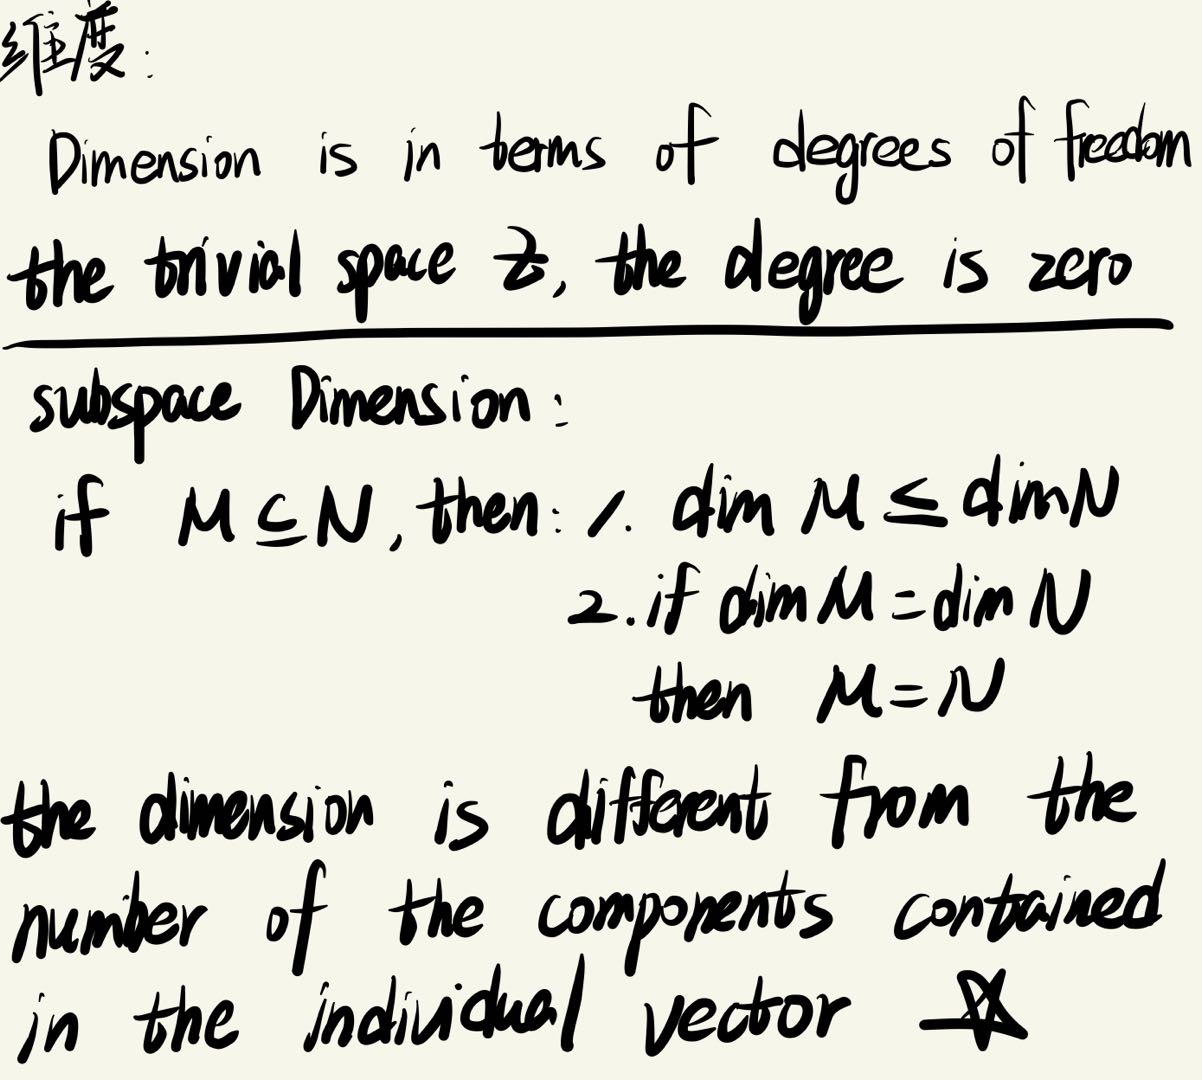 维度:
Dimension is in terms of degrees of freedom
the trivial space Z, the degree is zero
subspace Dimension:
if M ⊆ N, then: 1. dim M ≤ dim N
2. if dim M = dim N
then M = N
the dimension is different from the
number of the components contained
in the individual vector ☆